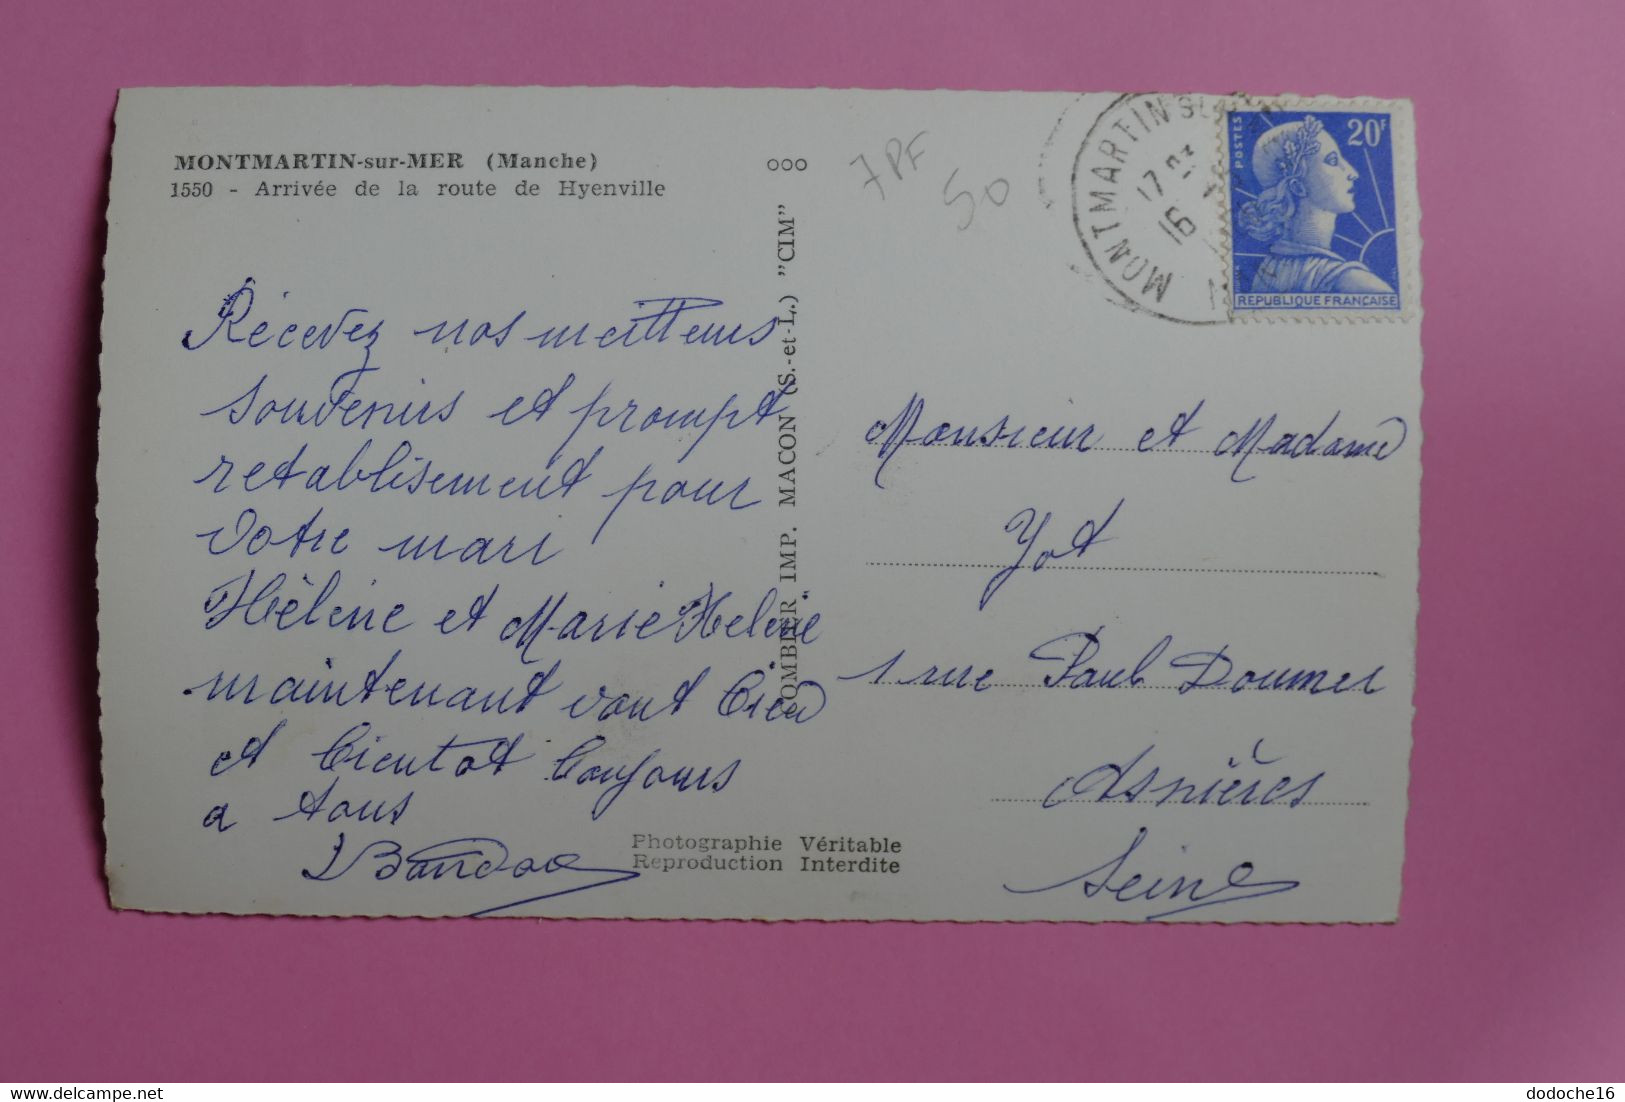 MONTMARTIN-sur-MER (Manche)
1550 - Arrivée de la route de Hyenville
ooo
7PF
50
MONTMARTIN S
17
16
POSTES
20F
REPUBLIQUE FRANÇAISE
COMBIER IMP. MACON (S.-et-L.) "CIM"
Récevez nos meilleurs
souvenirs et prompt
retablisement pour
votre mari
Hélène et Marie Helene
maintenant vont bien
et bientot toujours
a tous
Monsieur et Madame
Yot
1 rue Paul Doumer
Asnières
Seine
Photographie Véritable
Reproduction Interdite
dodoche16